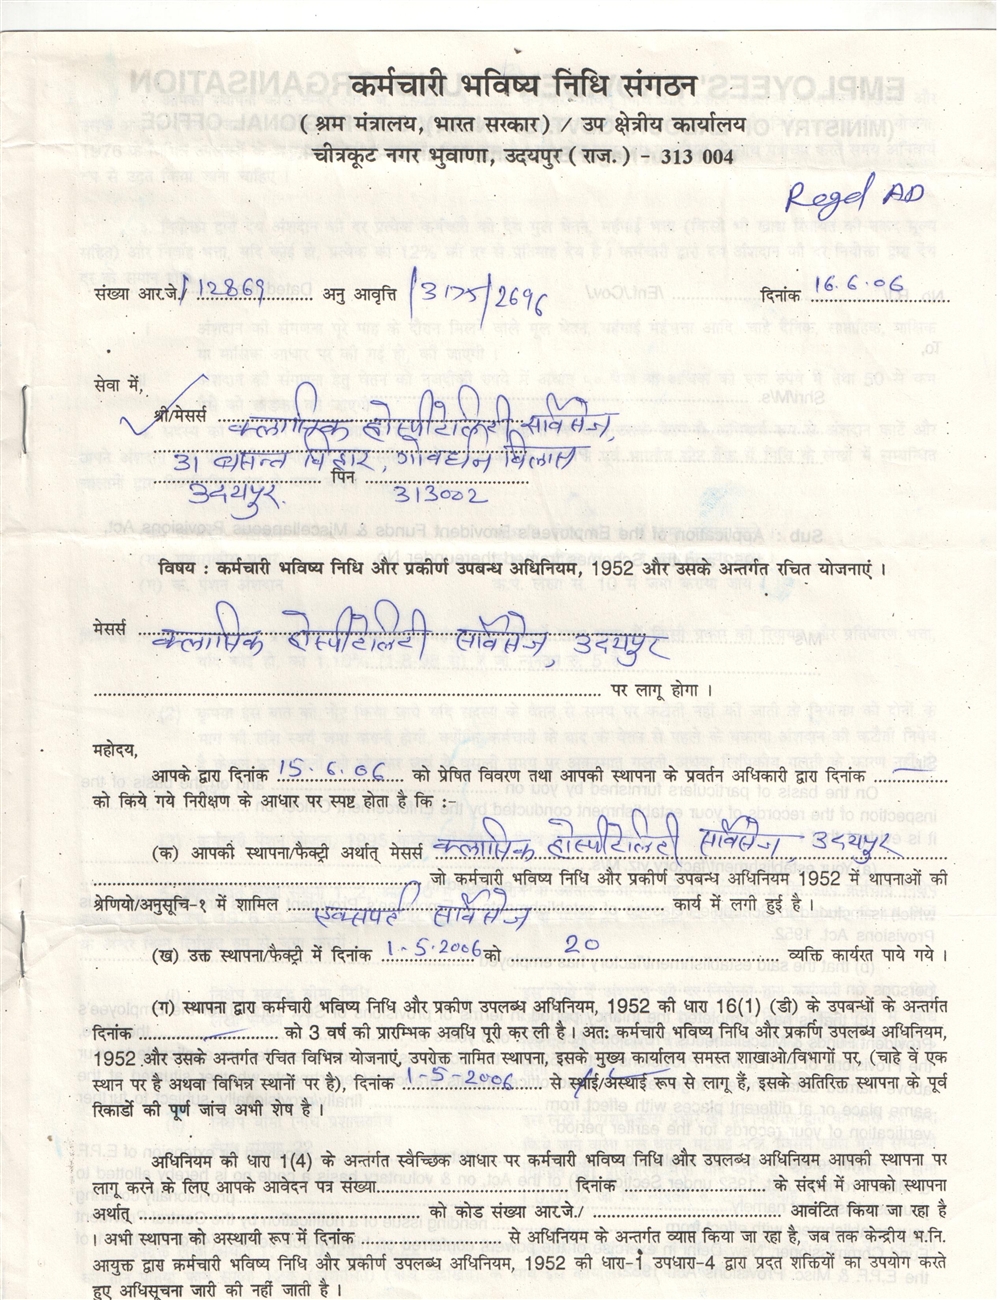 कर्मचारी भविष्य निधि संगठन
( श्रम मंत्रालय, भारत सरकार ) / उप क्षेत्रीय कार्यालय
चीत्रकूट नगर भुवाणा, उदयपुर ( राज. ) - 313 004
Regd AD
संख्या आर.जे./ 12869 अनु आवृत्ति /3175/2696 दिनांक 16.6.06
सेवा में,
श्री/मेसर्स क्लासिक होस्पीटेलिटी सर्विसेज,
31 वसन्त विहार, गोवर्धन विलास
उदयपुर. पिन 313002
विषय : कर्मचारी भविष्य निधि और प्रकीर्ण उपबन्ध अधिनियम, 1952 और उसके अन्तर्गत रचित योजनाएं ।
मेसर्स क्लासिक होस्पीटेलिटी सर्विसेज, उदयपुर
पर लागू होगा ।
महोदय,
आपके द्वारा दिनांक 15.6.06 को प्रेषित विवरण तथा आपकी स्थापना के प्रवर्तन अधिकारी द्वारा दिनांक —
को किये गये निरीक्षण के आधार पर स्पष्ट होता है कि :-
(क) आपकी स्थापना/फैक्ट्री अर्थात् मेसर्स क्लासिक होस्पीटेलिटी सर्विसेज, उदयपुर
जो कर्मचारी भविष्य निधि और प्रकीर्ण उपबन्ध अधिनियम 1952 न थापनाओं की
श्रेणियो/अनुसूचि-१ में शामिल एक्सपर्ट सर्विसेज कार्य में लगी हुई है ।
(ख) उक्त स्थापना/फैक्ट्री में दिनांक 1-5-2006 को 20 व्यक्ति कार्यरत पाये गये ।
(ग) स्थापना द्वारा कर्मचारी भविष्य निधि और प्रकीण उपलब्ध अधिनियम, 1952 की धारा 16(1) (डी) के उपबन्धों के अन्तर्गत
दिनांक — को 3 वर्ष की प्रारम्भिक अवधि पूरी कर ली है । अतः कर्मचारी भविष्य निधि और प्रकर्णि उपलब्ध अधिनियम,
1952 और उसके अन्तर्गत रचित विभिन्न योजनाएं, उपरोक्त नामित स्थापना, इसके मुख्य कार्यालय समस्त शाखाओ/विभागों पर, (चाहे वें एक
स्थान पर है अथवा विभिन्न स्थानों पर है), दिनांक 1-5-2006 से स्थाई/अस्थाई रूप से लागू हैं, इसके अतिरिक्त स्थापना के पूर्व
रिकार्डों की पूर्ण जांच अभी शेष है ।
अधिनियम की धारा 1(4) के अन्तर्गत स्वैच्छिक आधार पर कर्मचारी भविष्य निधि और उपलब्ध अधिनियम आपकी स्थापना पर
लागू करने के लिए आपके आवेदन पत्र संख्या दिनांक के संदर्भ में आपको स्थापना
अर्थात् को कोड संख्या आर.जे./ आवंटित किया जा रहा है
। अभी स्थापना को अस्थायी रूप में दिनांक से अधिनियम के अन्तर्गत व्याप्त किया जा रहा है, जब तक केन्द्रीय भ.नि.
आयुक्त द्वारा कर्मचारी भविष्य निधि और प्रकीर्ण उपलब्ध अधिनियम, 1952 की धारा-1 उपधारा-4 द्वारा प्रदत शक्तियों का उपयोग करते
हुए अधिसूचना जारी की नहीं जाती है ।